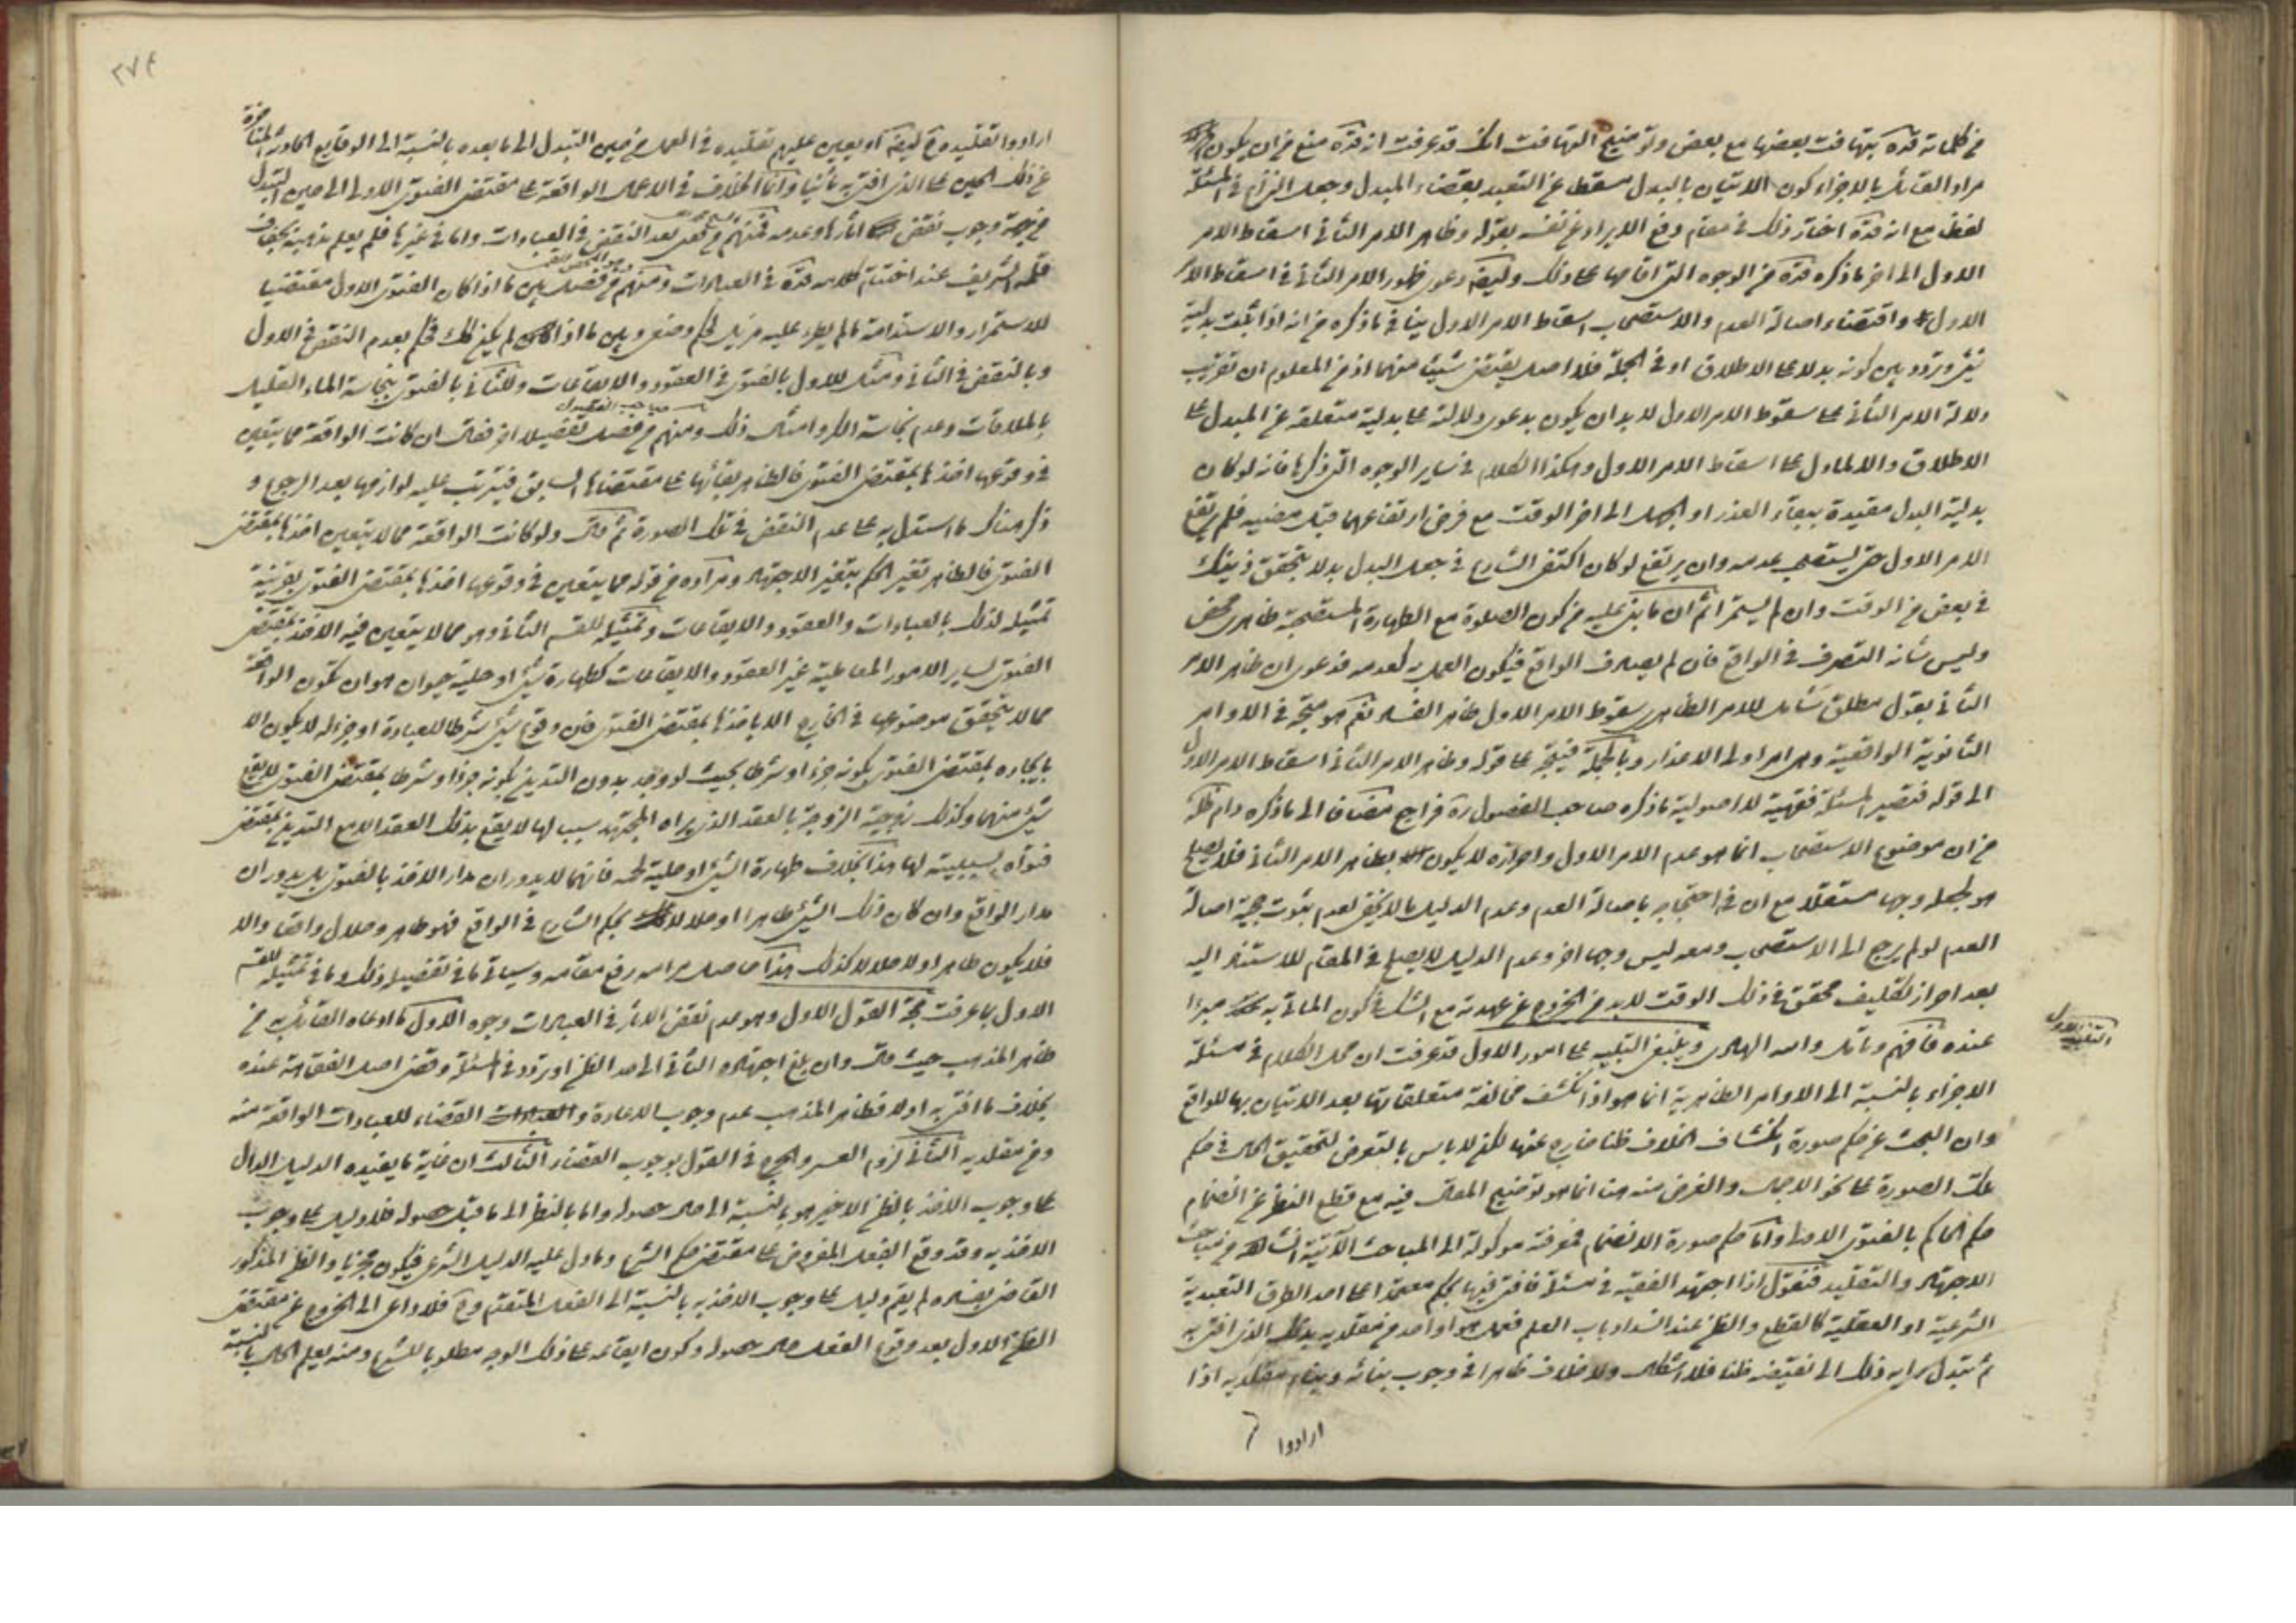 من كلماته قدّه يتهافت بعضها مع بعض وتوضيح التهافت انك قد عرفت انه قدّه منع من ان يكون
مراد القائل بالاجزاء كون الاتيان بالبدل مسقطا عن التعبد بقضاء المبدل وجعل النزاع في المسئلة
لفظيا مع انه قدّه اختار ذلك في مقام دفع الايراد عن نفسه بقوله وظاهر الامر الثاني اسقاط الامر
الاول الى اخر ما ذكره قدّه من الوجوه التي اقامها على ذلك وايضا دعوى ظهور الامر الثاني في اسقاط الامر
الاول واقتضاء اصالة العدم والاستصحاب اسقاط الامر الاول ينافي ما ذكره من انه اذا ثبت بدلية
شئ وتردد بين كونه بدلا على الاطلاق او في الجملة فلا اصل يقتضي شيئا منهما اذ من المعلوم ان تقريب
دلالة الامر الثاني على سقوط الامر الاول لا بد ان يكون بدعوى دلالته على بدلية متعلقه عن المبدل على
الاطلاق والا لما دل على اسقاط الامر الاول وهكذا الكلام في ساير الوجوه التي ذكرها فانه لو كان
بدلية البدل مقيدة ببقاء العذر او الجهل الى اخر الوقت مع فرض ارتفاعهما قبل مضيه فلم يرتفع
الامر الاول حتى يستصحب عدمه وان يرتفع لو كان اكتفى الشارع في جعل البدل بدلا بتحقق ذينك
في بعض من الوقت وان لم يستمرا ثم ان ما بنى عليه من كون الصلوة مع الطهارة المستصحبة ظاهري محض
وليس شانه التصرف في الواقع فان لم يصادف الواقع فيكون العمل به كعدمه فدعوى ان ظاهر الامر
الثاني بقول مطلق شامل للامر الظاهري سقوط الامر الاول ظاهر الفساد نعم هو متجه في الاوامر
الثانوية الواقعية وهي اوامر اولى الاعذار وبالجملة فيتجه على قوله وظاهر الامر الثاني اسقاط الامر الاول
الى قوله فتصير المسئلة فقهية لا اصولية ما ذكره صاحب الفصول ره فراجع مضافا الى ما ذكره دام ظله
من ان موضوع الاستصحاب انما هو عدم الامر الاول واحرازه لا يكون بظاهر الامر الثاني فلا يصلح
هو لجعله وجها مستقلا مع ان في احتجاجه باصالة العدم وعدم الدليل ما لا يخفى لعدم ثبوت حجية اصالة
العدم لو لم يرجع الى الاستصحاب ومعه ليس وجها اخر وعدم الدليل لا يصلح في المقام للاستناد اليه
بعد احراز تكليف محقق في ذلك الوقت لا بد من الخروج عن عهدته مع الشك في كون الماتي به مبرزا
عنده فافهم وتامل والله الهادى وينبغي التنبيه على امور الاول قد عرفت ان محل الكلام في مسئلة
التنبيه الاول
الاجزاء بالنسبة الى الاوامر الظاهرية انما هو اذا انكشف مخالفة متعلقاتها بعد الاتيان بها للواقع
وان البحث عن حكم صورة انكشاف الخلاف ظنا خارج عنها لكن لا باس بالتعرض لتحقيق الحال في حكم
تلك الصورة على نحو الاجمال والغرض منه هنا انما هو توضيح المقال فيه مع قطع النظر عن انضمام
حكم الحاكم بالفتوى الاولى واما حكم صورة الانضمام فمعرفته موكولة الى المباحث الآتية انشاء الله في مباحث
الاجتهاد والتقليد فنقول اذا اجتهد الفقيه في مسئلة فافتى فيها بحكم معتمدا على احد الطرق التعبدية
الشرعية او العقلية كالقطع والظن عند انسداد باب العلم فعمل هو او احد من مقلديه بذلك الذي افتى به
ثم تبدل رايه ذلك الى نقيضه ظنا فلا اشكال ولا خلاف ظاهرا في وجوب بنائه وبناء مقلديه اذا
ارادوا
٢٧٤
ارادوا التقليد وح ايضا او يعين عليهم تقليده في العمل من حين التبدل الى ما بعده بالنسبة الى الوقايع الحادثة المتاخرة
عن ذلك الحين على الذي افتى به ثانيا وانما الخلاف في الاعمال الواقعة على مقتضى الفتوى الاولى الى حين التبدل
من جهة وجوب نقض اثارها وعدمه فمنهم من يدعى بعد النقض في العبادات واما في غيرها فلم يعلم مذهبه بجفاف
قلمه الشريف عند اختتام كلامه قدّه في العبادات ومنهم من فصل بين ما اذا كان الفتوى الاول مقتضيا
للاستمرار والاستدامة ما لم يطرء عليه مزيل لحكم وضعى وبين ما اذا لم يكن كك فحكم بعدم النقض في الاول
وبالنقض في الثاني ومثل للاول بالفتوى في العقود والايقاعات وللثاني بالفتوى بنجاسة الماء القليل
بالملاقات وعدم نجاسة الكر وامثال ذلك ومنهم من فصل تفصيلا اخر فقال ان كانت الواقعة مما يتعين
صاحب الفصول
في وقوعها اخذها بمقتضى الفتوى فالظاهر بقائها على مقتضاها السابق فيترتب عليه لوازمها بعد الرجوع و
ذكر هناك ما استدل به على عدم النقض في تلك الصورة ثم قال ولو كانت الواقعة مما لا يتعين اخذها بمقتضى
الفتوى فالظاهر تغير الحكم بتغير الاجتهاد ومراده من قوله مما يتعين في وقوعها اخذها بمقتضى الفتوى بقرينة
تمثيله لذلك بالعبادات والعقود والايقاعات وتمثيله للقسم الثاني وهو مما لا يتعين فيه الاخذ بمقتضى
الفتوى لساير الامور المعاملية غير العقود والايقاعات كطهارة شئ او حلية حيوان هو ان تكون الواقعة
مما لا يتحقق موضوعها في الخارج الا باخذها بمقتضى الفتوى فان وقوع شئ شرطا للعبادة او جزء له لا يكون الا
بايجاده بمقتضى الفتوى بكونه جزء او شرطا بحيث لو وجد بدون التدين بكونه جزءا او شرطا بمقتضى الفتوى لا يقع
شئ منهما وكذلك زوجية الزوجة بالعقد الذي يراه المجتهد سببا لها لا يقع بذلك العقد الا مع التدين بمقتضى
فتواه بسببيته لها هذا بخلاف طهارة الشئ او حلية لحمه فانهما لا يدوران مدار الاخذ بالفتوى بل يدوران
مدار الواقع وان كان ذلك الشئ طاهرا او حلالا بحكم الشارع في الواقع فهو طاهر وحلال واقعا والا
فلا يكون طاهرا ولا حلالا كذلك هذا حاصل مرامه رفع مقامه وسياتي ما في تفصيله ذلك وما في تمثيله للقسم
الاول بما عرفت حجة القول الاول وهو عدم نقض الاثار في العبادات وجوه الاول ما ادعاه القائل به من
ظاهر المذهب حيث قال وان بلغ اجتهاده الثاني الى حد الظن او تردد في المسئلة وقضى اصل الفقاهة عنده
بخلاف ما افتى به اولا فظاهر المذهب عدم وجوب الاعادة و القضاء للعبادات الواقعة منه
ومن مقلديه الثاني لزوم العسر والحرج في القول بوجوب القضاء الثالث ان غاية ما يفيده الدليل الدال
على وجوب الاخذ بالظن الاخير هو بالنسبة الى حال حصوله واما بالنظر الى ما قبل حصوله فلا دليل على وجوب
الاخذ به وقد وقع الفعل المفروض على مقتضى حكم الشرع وما دل عليه الدليل الشرعى فيكون مجزيا والظن المذكور
القاضي بفساده لم يقم دليل على وجوب الاخذ به بالنسبة الى الفعل المتقدم وح فلا داعى الى الخروج عن مقتضى
الظن الاول بعد وقوع الفعل حال حصوله وكون ايقاعه على ذلك الوجه مطلوبا للشرع ومنه يعلم الحال بالنسبة